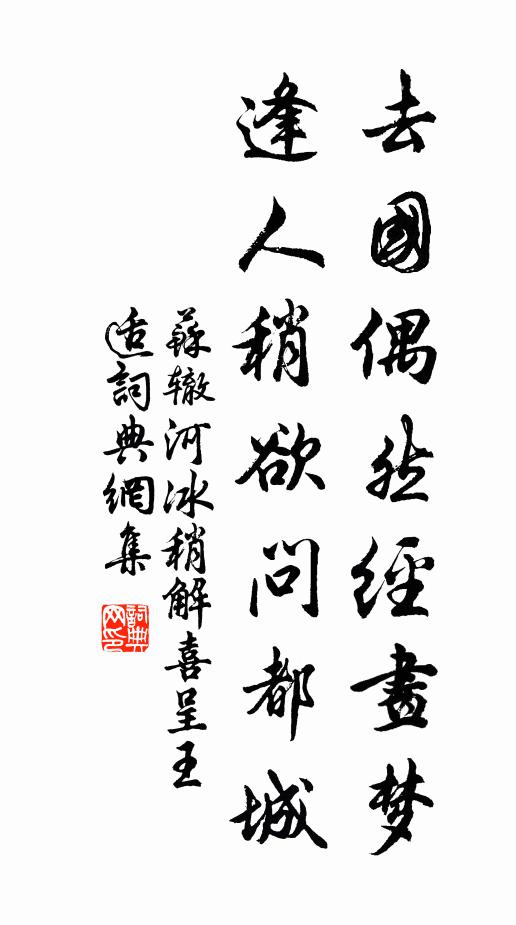 去國偶然經晝梦
逢人稍欲問都城
蘇辙河冰稍解喜呈王
适詞典網集
詞典
网印